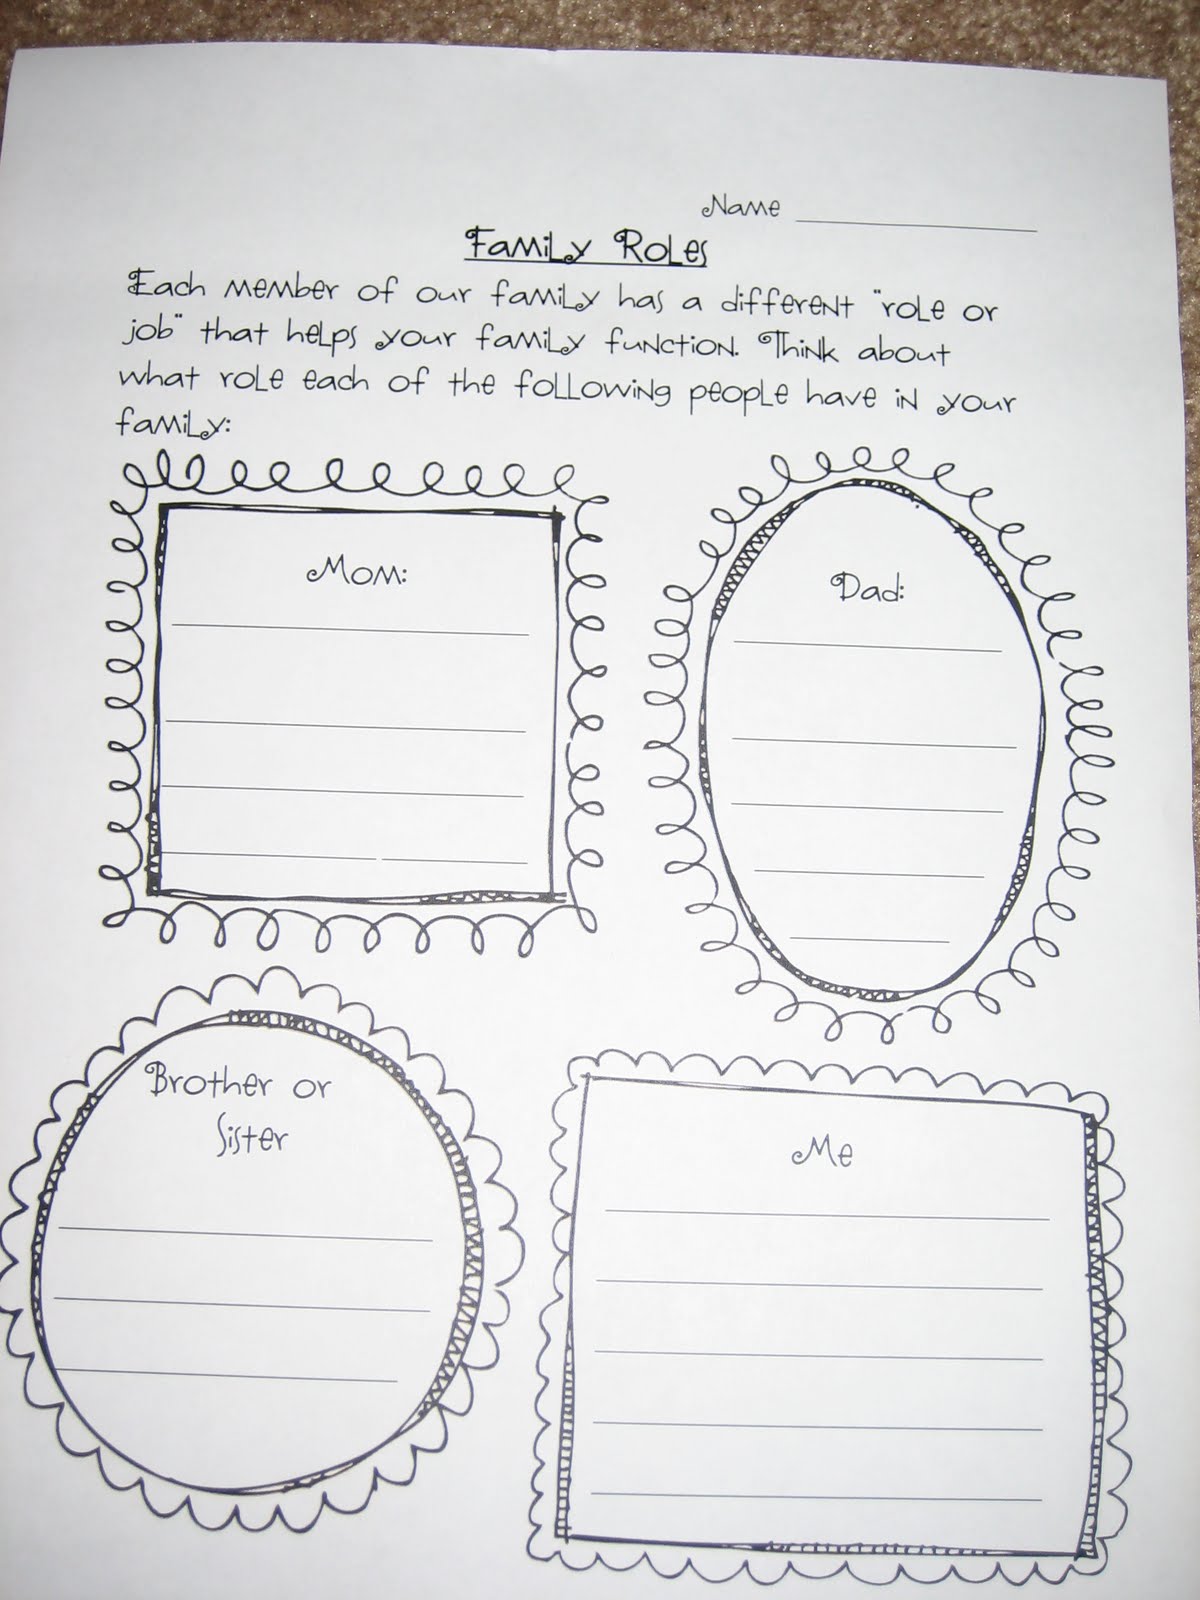 Name
Family Roles
Each member of our family has a different "role or
job" that helps your family function. Think about
what role each of the following people have in your
family:
Mom:
Dad:
Brother or
Sister
Me